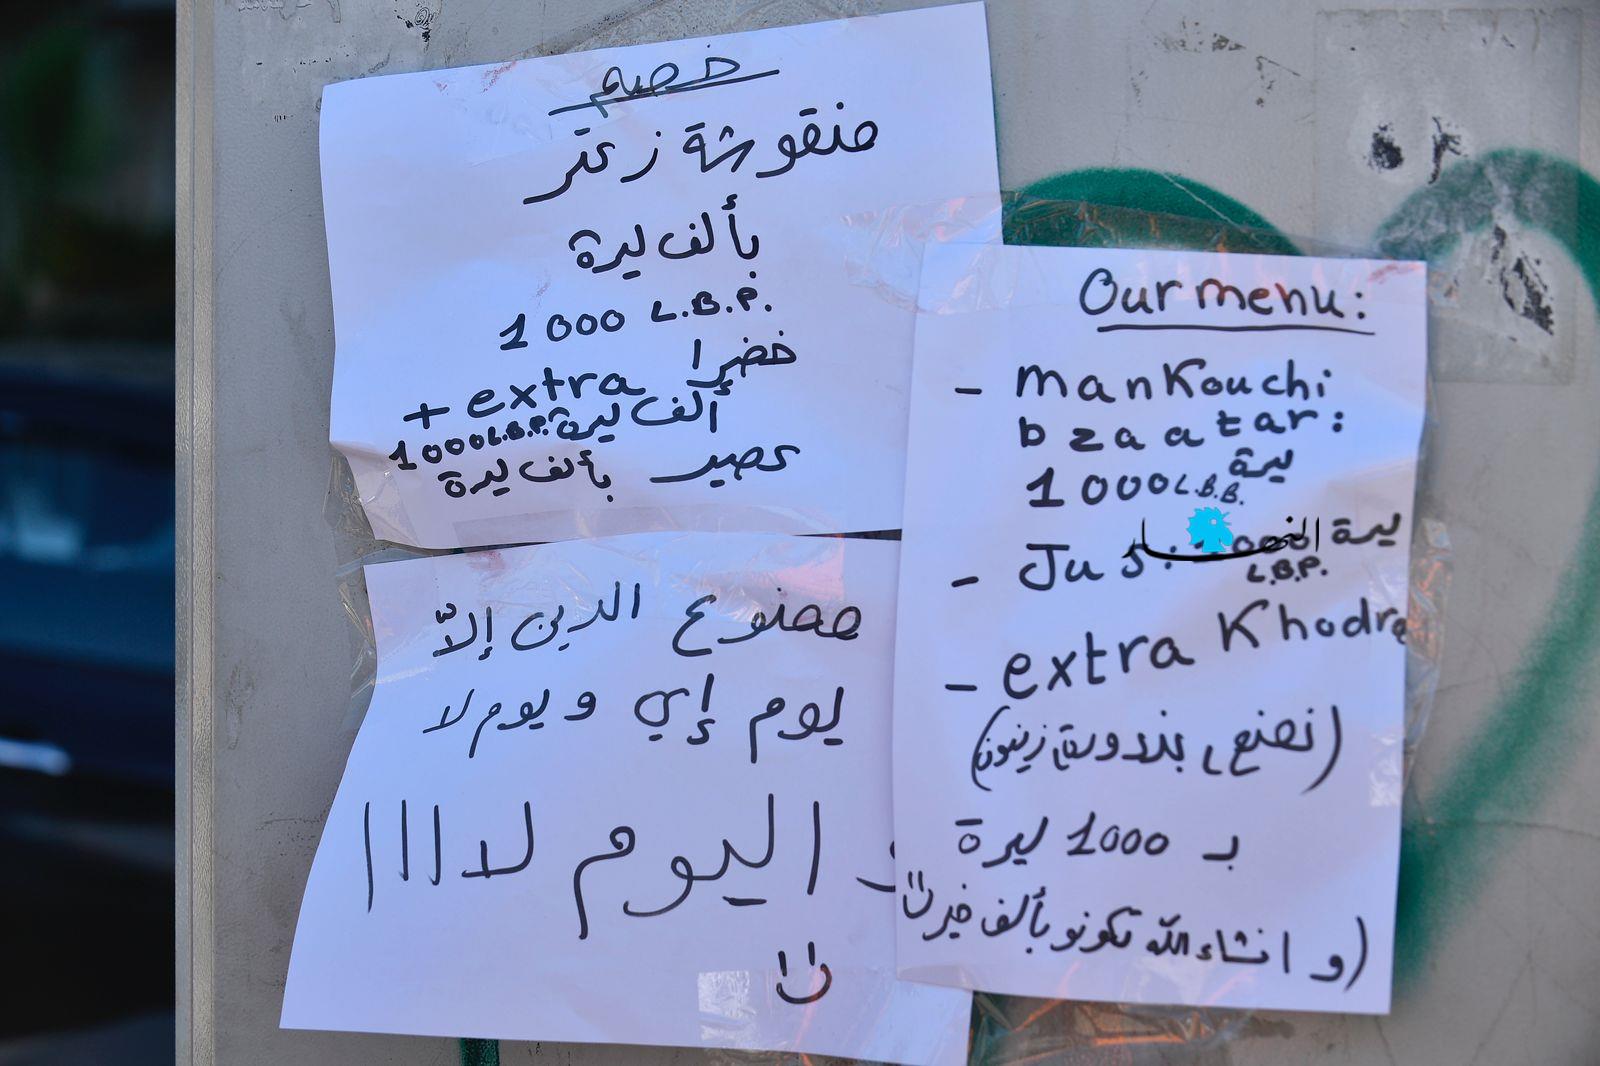 خصم
منقوشة زعتر
بألف ليرة
1000 L.B.P.
خضرا
+ extra
ألف ليرة 1000 L.B.P.
عصير بألف ليرة
ممنوع الدين إلاّ
يوم إي و يوم لا
و اليوم لااااا
Our menu:
- manKouchi
bzaatar:
1000 L.B.B. ليرة
- Jus: ليرة
النهار
L.B.P.
- extra Khodra
(نعنع، بندورة، زيتون)
بـ 1000 ليرة
(و انشاءالله تكونو بألف خير